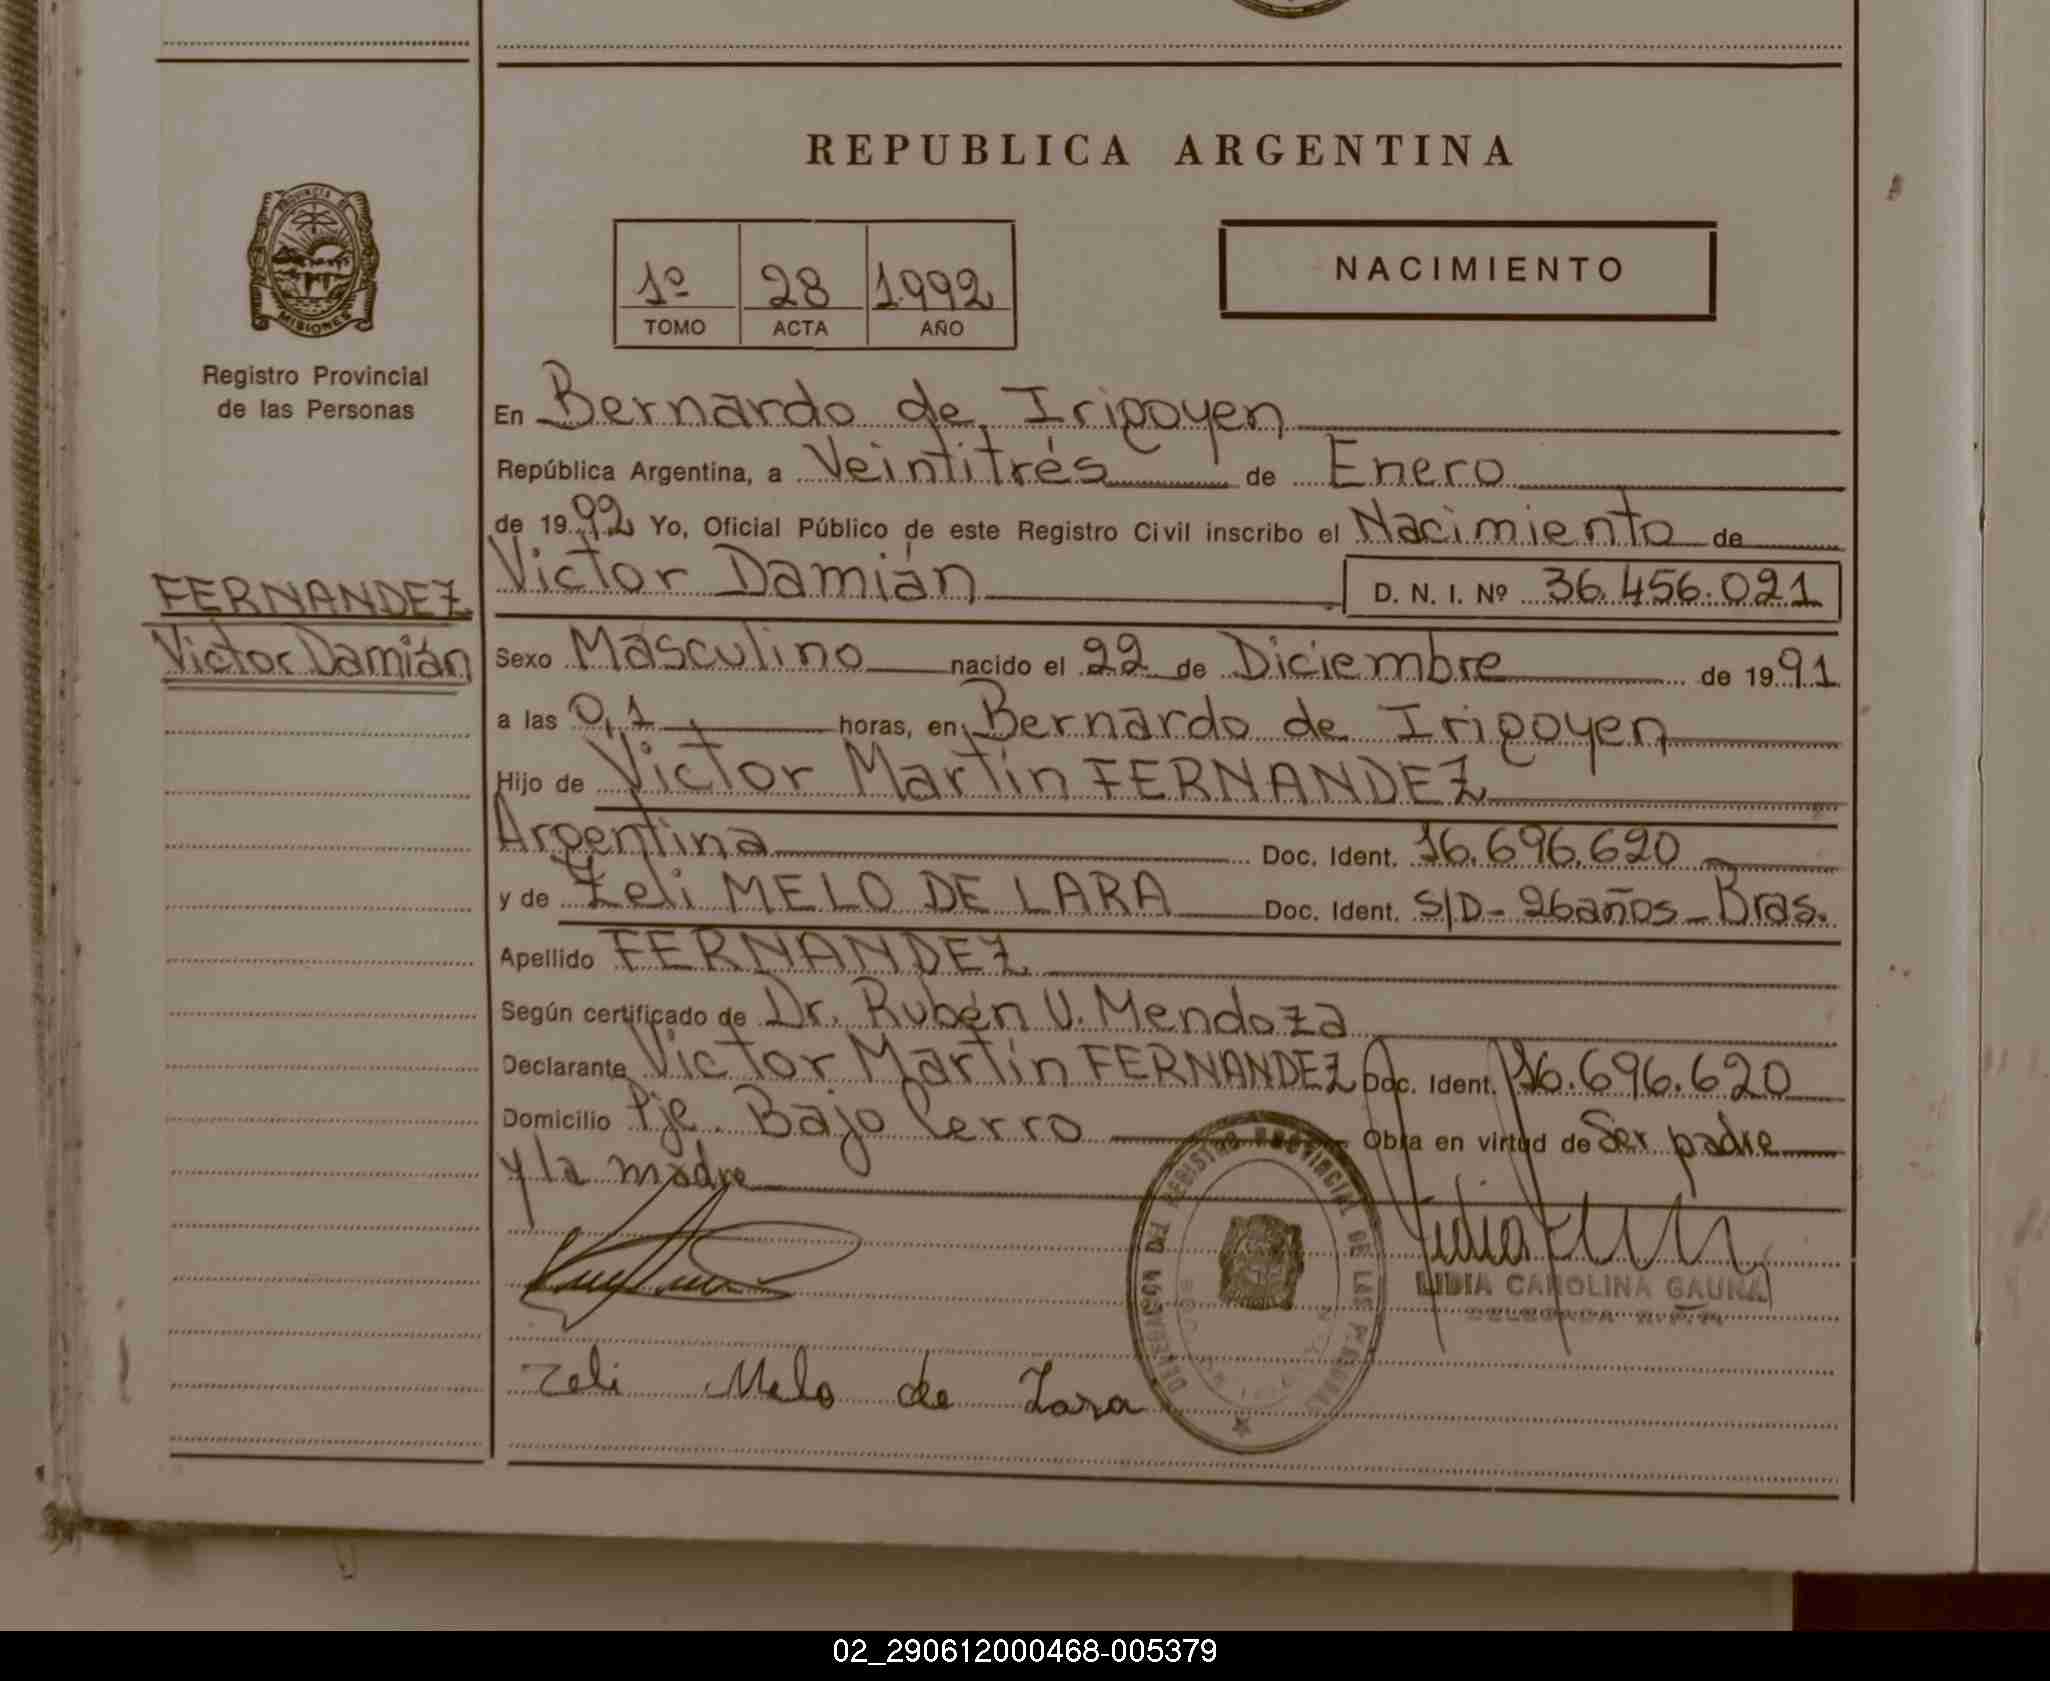 REPUBLICA ARGENTINA
PROVINCIA DE
MISIONES
Registro Provincial
de las Personas
1º 28 1992
TOMO ACTA AÑO
NACIMIENTO
FERNANDEZ
Victor Damián
En Bernardo de Irigoyen
República Argentina, a Veintitrés de Enero
de 1992 Yo, Oficial Público de este Registro Civil inscribo el Nacimiento de
Victor Damián D. N. I. Nº 36.456.021
Sexo Masculino nacido el 22 de Diciembre de 1991
a las 0,1 horas, en Bernardo de Irigoyen
Hijo de Victor Martín FERNANDEZ
Argentina Doc. Ident. 16.696.620
y de Zeli MELO DE LARA Doc. Ident. S/D - 26 años - Bras.
Apellido FERNANDEZ
Según certificado de Dr. Rubén V. Mendoza
Declarante Victor Martín FERNANDEZ Doc. Ident. 16.696.620
Domicilio Pje. Bajo Cerro Obra en virtud de Ser padre
y la madre
REGISTRO PROVINCIAL DE LAS PERSONAS
LIDIA CAROLINA GAUNA
DELEGADA R.P.P.
Zeli Melo de Lara
02_290612000468-005379